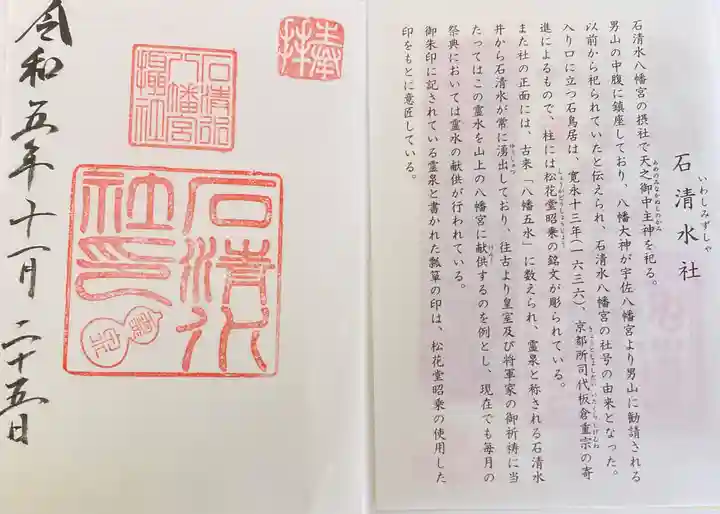 いわしみずしゃ
石清水社
あめのみなかぬしのかみ
石清水八幡宮の摂社で天之御中主神を祀る。
男山の中腹に鎮座しており、八幡大神が宇佐八幡宮より男山に勧請される
以前から祀られていたと伝えられ、石清水八幡宮の社号の由来となった。
きょうとしょしだい いたくらしげむね
入り口に立つ石鳥居は、寛永十三年(一六三六)、京都所司代板倉重宗の寄
しょうかどうしょうじょう
進によるもので、柱には松花堂昭乗の銘文が彫られている。
また社の正面には、古来「八幡五水」に数えられ、霊泉と称される石清水
ゆうしゅつ
井から石清水が常に湧出しており、往古より皇室及び将軍家の御祈祷に当
けんく
たってはこの霊水を山上の八幡宮に献供するのを例とし、現在でも毎月の
祭典においては霊水の献供が行われている。
御朱印に記されている霊泉と書かれた瓢箪の印は、松花堂昭乗の使用した
印をもとに意匠している。
奉拝
石清水
八幡宮
摂社
石清水
社印
霊泉
令和五年十一月二十五日